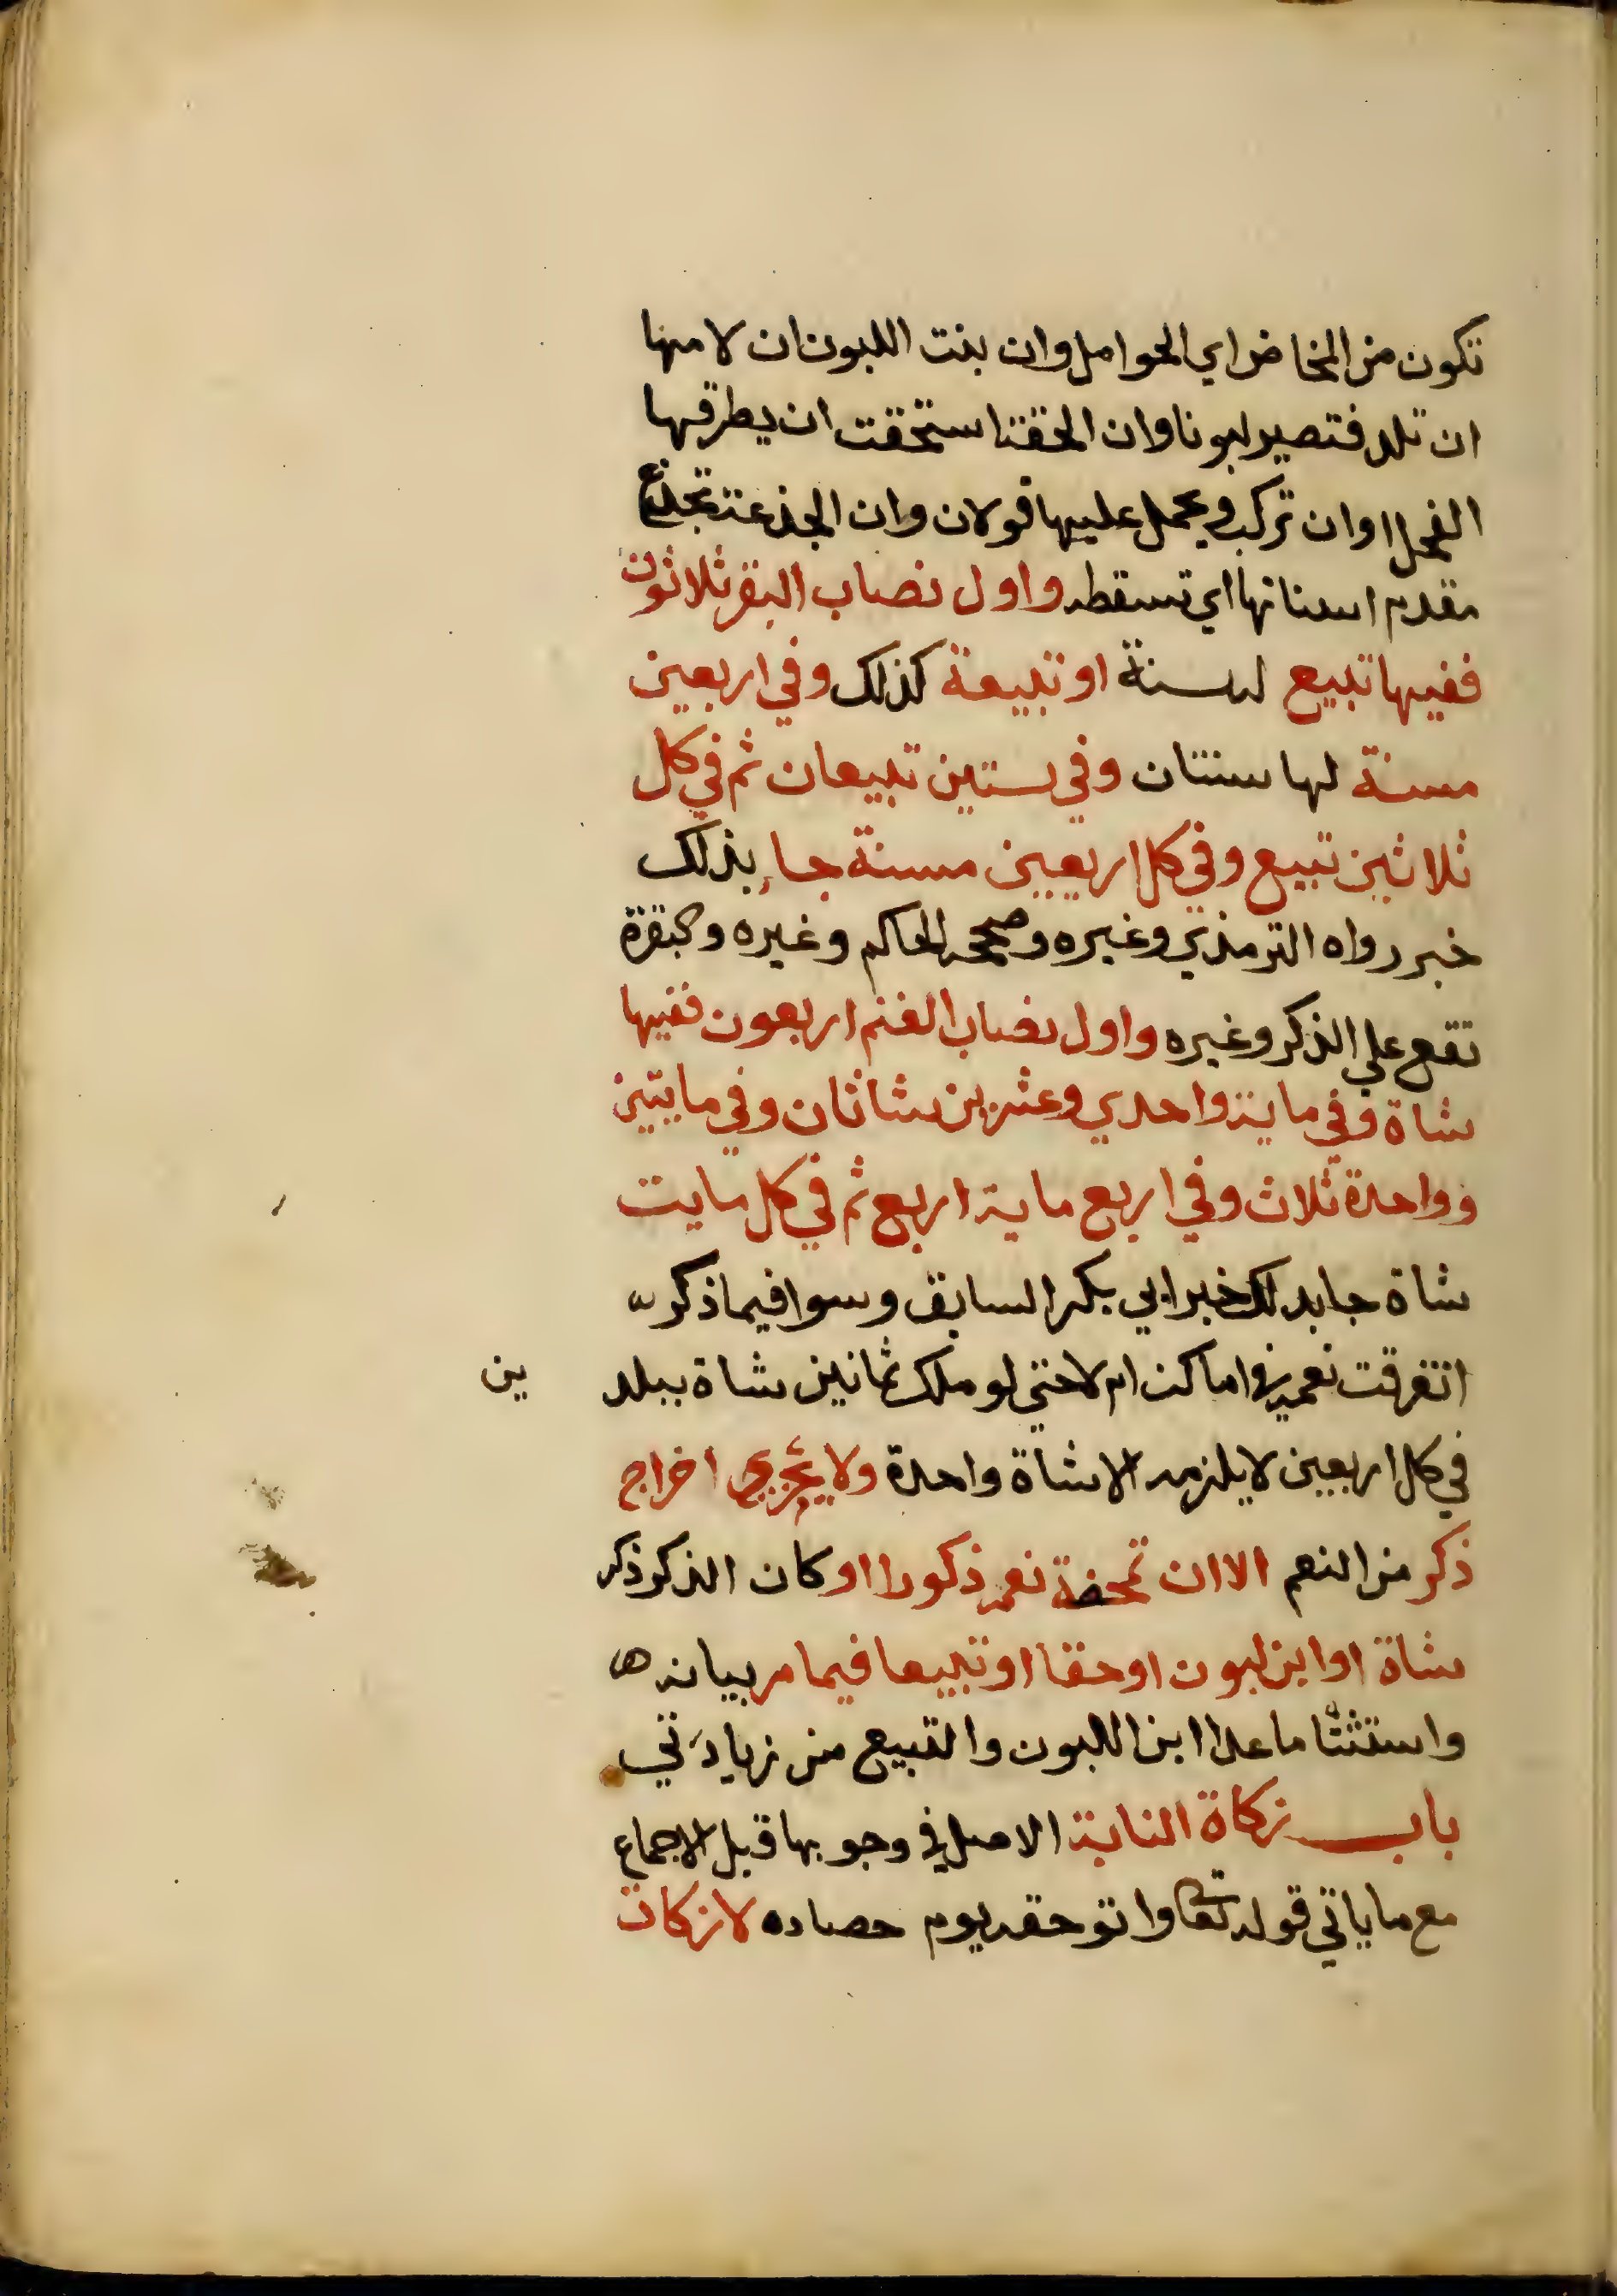 تكون من المخاض اي الحوامل وان بنت اللبون ان لامها
ان تلد فتصير لبونا وان الحقة استحقت ان يطرقها
الفحل او ان تركب ويحمل عليها قولان وان الجذعة تجذع
مقدم اسنانها اي تسقطه واول نصاب البقر ثلاثون
ففيها تبيع له سنة او تبيعة كذلك وفي اربعين
مسنة لها سنتان وفي ستين تبيعان ثم في كل
ثلاثين تبيع وفي كل اربعين مسنة جاء بذلك
خبر رواه الترمذي وغيره وصححه الحاكم وغيره والبقرة
تقع علي الذكر وغيره واول نصاب الغنم اربعون ففيها
شاة وفي ماية واحدي وعشرين شاتان وفي مايتين
وواحدة ثلاث وفي اربع ماية اربع ثم في كل ماية
شاة جا بذلك خبر ابي بكر السابق وسوا فيما ذكر
اتفرقت نعمه في اماكن ام لا حتي لو ملك ثمانين شاة ببلد ين
في كل اربعين لا يلزمه الا شاة واحدة ولا يجزي اخراج
ذكر من النعم الا ان تمحضة نعمه ذكورا او كان الذكر ذكر
شاة او ابن لبون او حقا او تبيعا فيما مر بيانه
واستثنا ما عدا ابن اللبون والتبيع من زيادتي
باب زكاة النابتة الاصل في وجوبها قبل الاجماع
مع ما ياتي قوله تعا واتو حقه يوم حصاده لا زكات